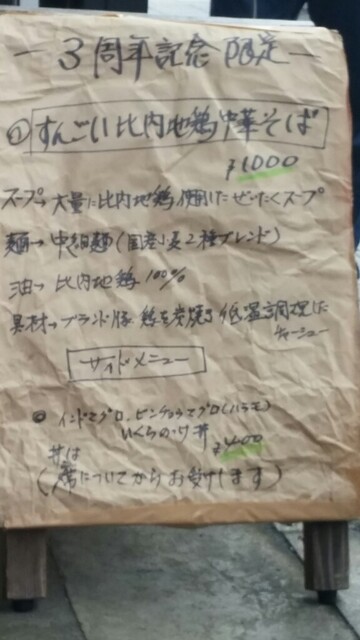 －3周年記念 限定－
①すんごい比内地鶏中華そば
¥1000
スープ→大量に比内地鶏使用したぜいたくスープ
麺→中細麺(国産小麦2種ブレンド)
油→比内地鶏100%
具材→ブランド豚、鶏を炭焼き低温調理した
チャーシュー
サイドメニュー
◎インドマグロ、ビンチョウマグロ(ハラモ)
いくらのっけ丼
¥400
丼は
(席についてからお受けします)